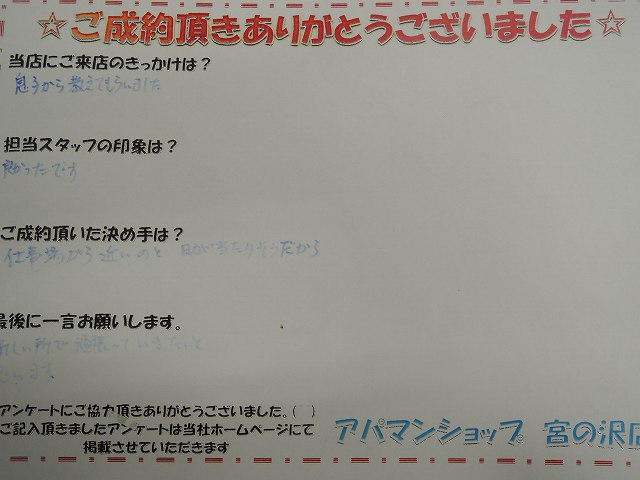 ☆ご成約頂きありがとうございました☆
当店にご来店のきっかけは？
息子から教えてもらいました
担当スタッフの印象は？
良かったです
ご成約頂いた決め手は？
仕事場から近いのと 日が当たりそうだから
最後に一言お願いします。
新しい所で頑張っていきたいと
思います
アンケートにご協力頂きありがとうございました。( )
ご記入頂きましたアンケートは当社ホームページにて
掲載させていただきます
アパマンショップ 宮の沢店